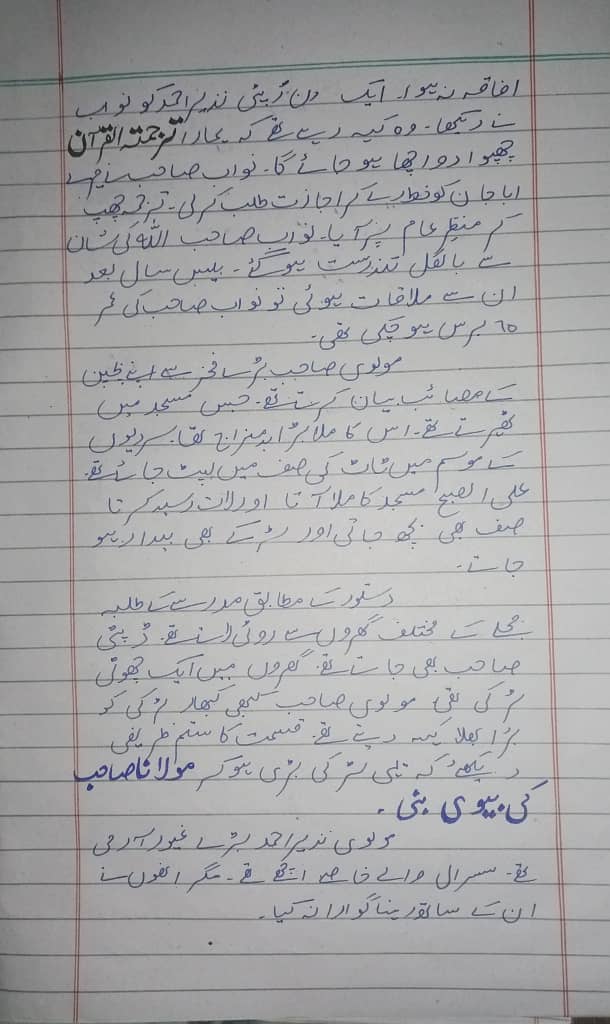 افاقہ نہ ہوا۔ ایک دن ڈپٹی نذیر احمد کو نواب
نے دیکھا۔ وہ کہہ رہے تھے کہ ہمارا ترجمتہ القرآن
چھپوا دو اچھا ہو جائے گا۔ نواب صاحب نے میرے
ابا جان کو خط لکھ کر اجازت طلب کر لی۔ ترجمہ چھپ
کر منظر عام پر آیا۔ نواب صاحب اللہ کی شان
سے بالکل تندرست ہو گئے۔ بیس سال بعد
ان سے ملاقات ہوئی تو نواب صاحب کی عمر
٦٥ برس ہو چکی تھی۔
مولوی صاحب بڑے فخر سے اپنے بچپن
کے مصائب بیان کرتے تھے۔ جس مسجد میں
ٹھہرتے تھے۔ اس کا ملا بڑا بد مزاج تھا۔ سردیوں
کے موسم میں ٹاٹ کی صف میں لپٹ جاتے تھے۔
علی الصبح مسجد کا ملا آتا اور لات رسید کرتا
صف بھی بچھ جاتی اور لڑکے بھی بیدار ہو
جاتے۔
دستور کے مطابق مدرسے کے طلبہ
محلے کے مختلف گھروں سے روٹی لاتے تھے۔ ڈپٹی
صاحب بھی جاتے تھے۔ گھروں میں ایک چھوٹی
لڑکی تھی۔ مولوی صاحب کبھی کبھار لڑکی کو
برا بھلا کہہ دیتے تھے۔ قسمت کا ستم ظریفی
دیکھئے کہ یہی لڑکی بڑی ہو کر مولانا صاحب
کی بیوی بنی۔
مولوی نذیر احمد بڑے غیور آدمی
تھے۔ سسرال والے خاصے اچھے تھے۔ مگر انھوں نے
ان کے ساتھ رہنا گوارا نہ کیا۔